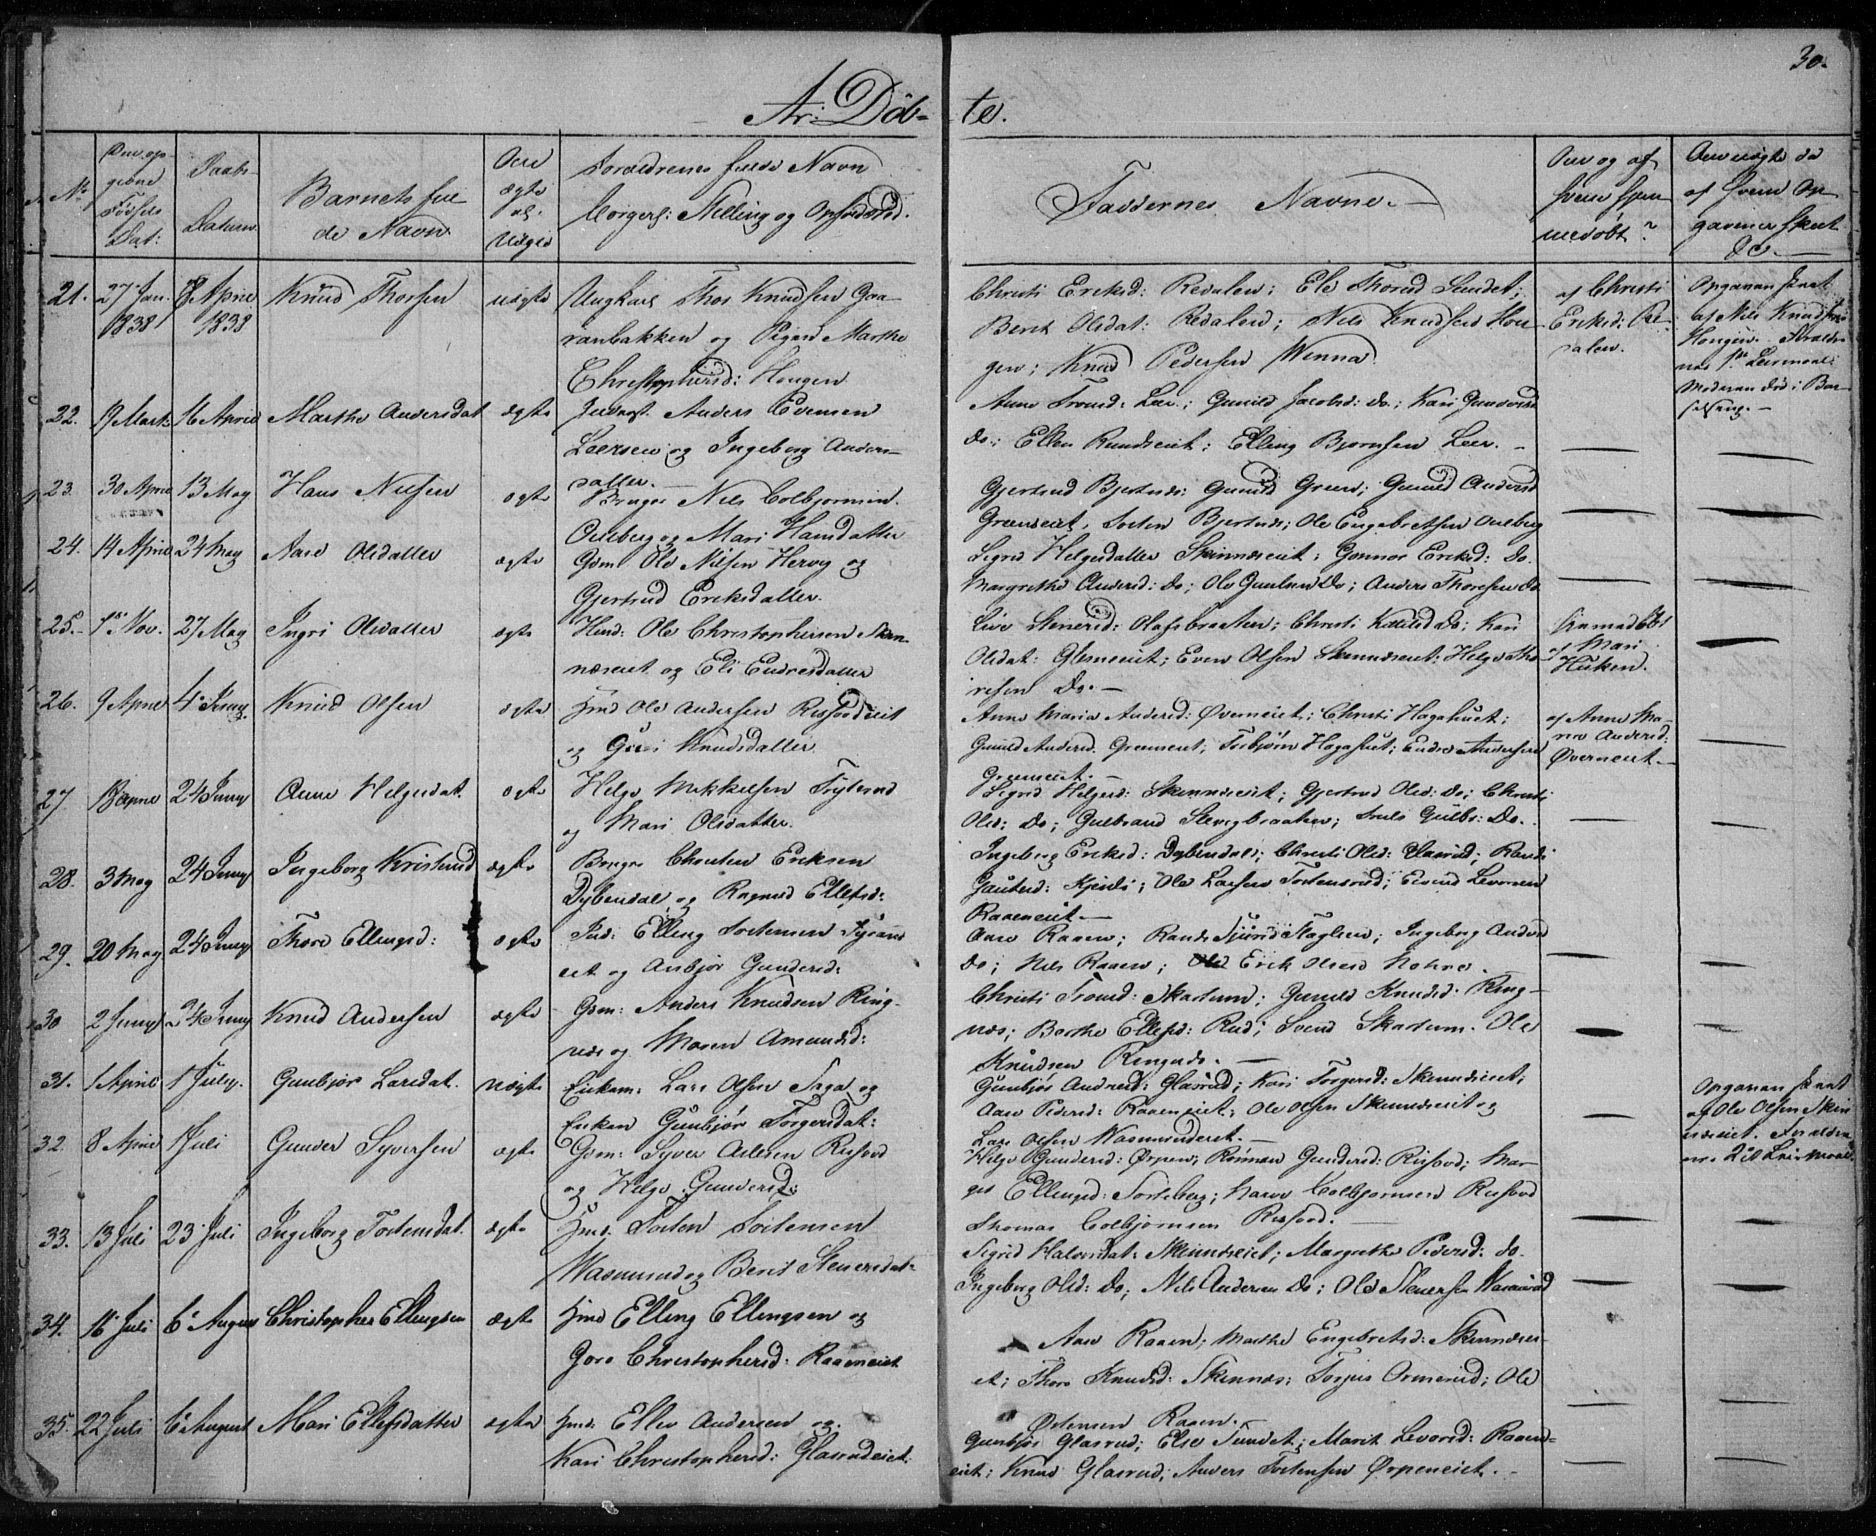 30.
Ar: Döb- te.
No.
Den op-
givne
Fødsels
Dat:
Daabs-
Datum
Barnets ful
de Navn
Om
ægte
el.
Uægte
Forældrenes fulde Navn
Borgerl: Stilling og Opholdssted.
Faddernes Navne.
Om og af
hvem hjem
medøbt?
21. 27 Jan. 1838 8 April 1838 Knud Thorsen uægte
Ungkarl Thor Knudsen Gra-
ranbakken og Pigen Marthe
Christophersd: Hougen
Christi Eriksd: Redalen; Ele Thorud Sundet;
Berit Olsdat: Redalen; Nils Knudsen Hou-
gen; Knud Pedersen Winna
af Christi
Eriksd: Re-
dalen.
Opgaven skeet
af Nils Knudsen
Hougen. Foræld-
nes 1ste Leiermaal.
Moderen død i Bar-
selseng.
22. 17 Marts 16 April Marthe Andersdat ægte
Inderst. Anders Evensen
Leersen og Ingeborg Anders-
datter.
Anne Trond: Leer; Gunild Jacobsd: do; Kari Gundersd
do; Ellen Rundreiet; Elling Bjornsen Leer.
23. 30 April 13 May Hans Nilsen ægte
Bruger Nils Colbjornsen
Oelberg og Mari Hansdatter
Gjertrud Bjertnes; Gunild Green; Gunild Andersd
Greeneiet, Torsten Bjertnes; Ole Engebretsen Oelberg
24. 14 April 24 May Aase Olsdatter ægte
Gsm: Ole Nilsen Hervy og
Gjertrud Eriksdatter.
Sigrid Helgesdatter Skinnæseiet; Gunnor Eriksd: Do
Margrethe Andersd: do; Ole Gunlsen Do; Anders Thoresen Do
25. 1st Nov. 27 May Ingri Olsdatter ægte
Hmd: Ole Christophersen Skin-
næseiet og Eli Endresdatter
Live Stenersd: Olafsbraaten; Christi Ketilsd Do; Kari
Olsdat: Glesneeiet; Even Olsen Skinnæseiet; Helge Tho-
resen Do.
Hjemmedøbt
af Mari
Husken.
26. 9 April 4 Juny Knud Olsen ægte
Hmd Ole Andersen Rusfordeiet
og Guri Knudsdatter
Anne Maria Andersd: Øverneiet; Christi Hagahuet;
Gunild Andersd. Greeneiet; Torbjørn Hagahuet; Endre Andersen
Greeneiet.
af Anne Ma-
ria Andersd:
Øverneiet.
27 13 April 24 Juny Anne Helgesdat. ægte
Helge Mikkelsen Tryterud
og Mari Olsdatter.
Sigrid Helgesd: Skinnæseiet; Gjertrud Olsd: do; Christi
Olsd: Do; Gulbrand Stengbraaten; Truls Gulbr: Do.
28. 3 May 24 Juny Ingeborg Kristensd ægte
Bruger Christen Eriksen
Dybendal og Ragnild Ellefsd:
Ingeborg Eriksd: Dybendal; Christi Olsd: Glasrud; Randi
Gautesd: Kjinli; Ole Larsen Tostensrud; Eivind Levorsen
Raaeneiet
29. 20 May 24 Juny Thore Ellingsd: ægte
Ind: Elling Torstensen
eiet og Anbjør Gundersd:
Aase Raaen; Randi Sjursd Staglien; Ingeborg Andersd
Do; Nils Raaen; Erik Olsen
30 2 Juny 24 Juny Knud Andersen ægte
Gsm: Anders Knudsen Ring-
næs og Maren Amundsd:
Christi Trond: Skartum; Gunild Knudsd: Ring-
næs; Berthe Ellefsd: Rud; Svend Skartum. Ole
Knudsen Ringnæs.
31. 1 April 1 July. Gunbjør Larsdat. uægte
Enkem: Lars Olsen Saga og
Enken Gunbjør Torgersdat:
Gunbjør Andersd: Glasrud; Kari Torgersd: Skinnæseiet;
Aase Pedersd: Raaeneiet; Ole Olsen Skinnæseiet og
Lars Olsen Wasmunderiet.
Opgaven skeet
af Ole Olsen Skin
næseiet. Forældre-
nes 2det Leiermaal.
32. 8 April 1 Juli Gunder Syversen ægte
Gsm: Syver Asle Rusford
og Helge Gundersd:
Helge Gundersd: Ørpen; Rønnau Gundersd: Rusford; Mar-
git Ellingsd: Torteberg; Colbjornsen Rusford
Thomas Colbjornsen Rusford.
33. 13 Juli 23 Juli Ingeborg Tostensdat. ægte
Hmd: Tosten Tostensen
Wasmund og Berit Stenersdat-
Sigrid Halvorsdat: Skinnæseiet; Margrethe Pedersd: do.
Ingeborg Olsd: Do; Nils Andersen Do; Ole Stenersen Wasmund
34. 16 Juli 6 August Christopher Ellingsen ægte
Hmd Elling Ellingsen og
Goro Christophersd: Raaeneiet
Aase Raaen; Marthe Engebretsd: Skinnæsei-
et; Thore Knudsd: Skinnæs; Torjus Ormerud; Ole
Østensen Raaen.
35. 22 Juli 6 August Mari Ellefsdatter ægte
Hmd: Ellev Andersen og
Kari Christophersd: Glasrudeiet.
Gunbjør Glasrud; Else Sundet; Marit Levorsd: Raaen-
eiet; Knud Glasrud; Anders Tostensen Ørpeneiet.